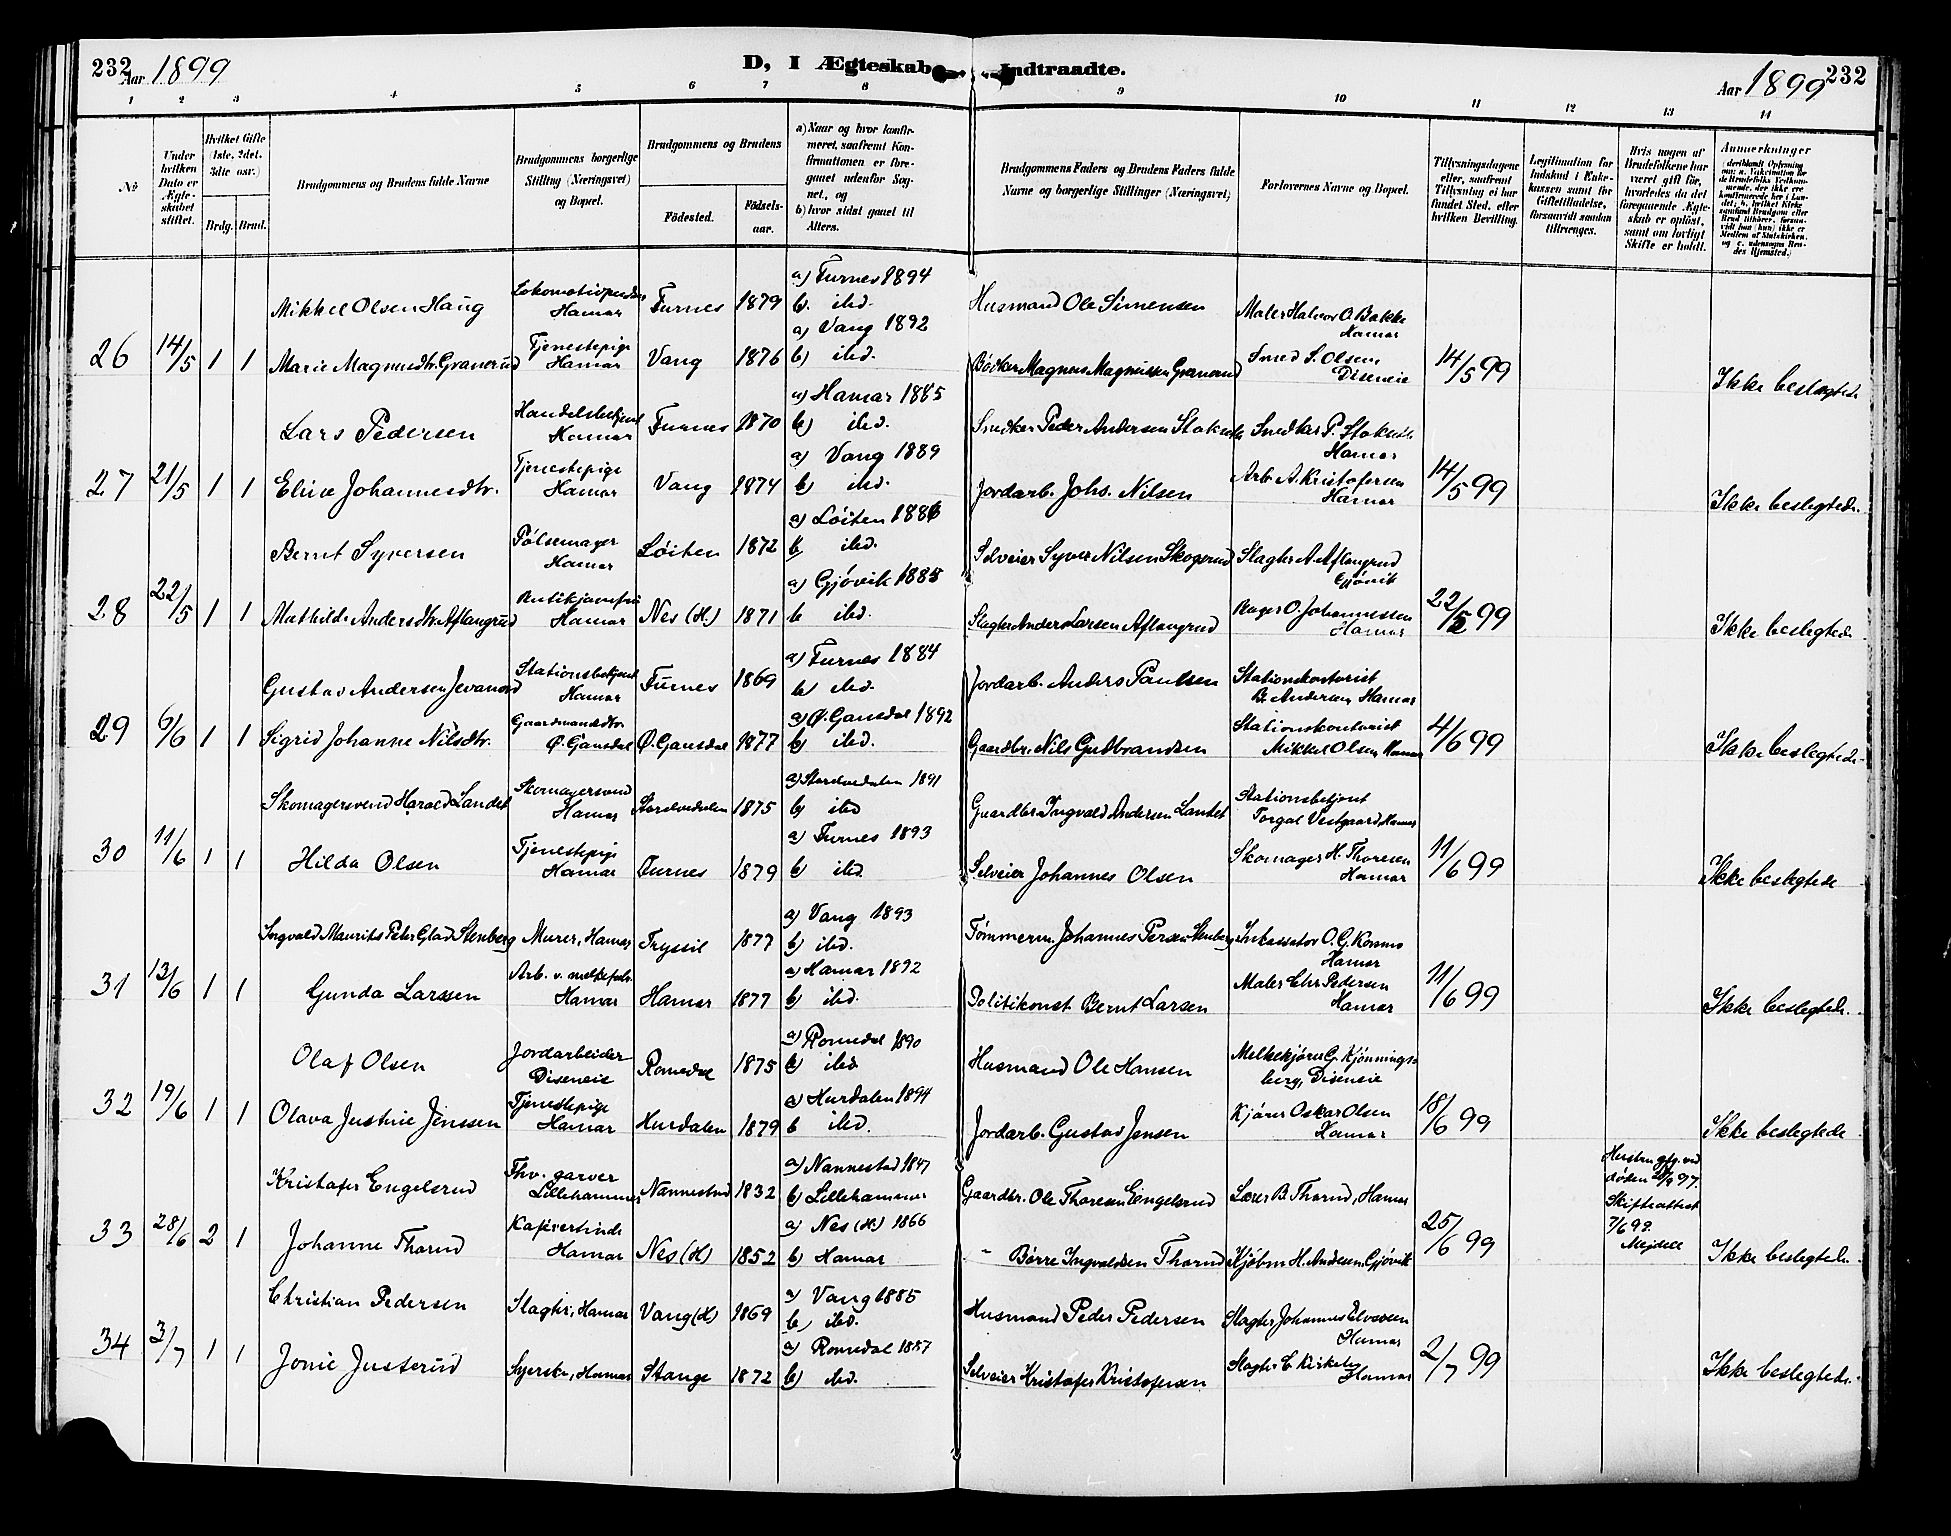 232 Aar 1899
D, I Ægteskab Indtraadte.
Aar 1899 232
1 2 3 4 5 6 7 8 9 10 11 12 13 14
№
Under hvilken Dato er Ægteskabet stiftet.
Hvilket Gifte (1ste, 2det, 3die osv.)
Brdg. Brud.
Brudgommens og Brudens fulde Navne
Brudgommens borgerlige Stilling (Næringsvei) og Bopæl.
Brudgommens og Brudens
Födested.
Födselsaar.
a) Naar og hvor konfirmeret, saafremt Konfirmationen er foregaaet udenfor Sognet, og
b) hvor sidst gaaet til Alters.
Brudgommens Faders og Brudens Faders fulde Navne og borgerlige Stillinger (Næringsvei)
Forlovernes Navne og Bopæl.
Tillysningsdagene eller, saafremt Tillysning ei har fundet Sted, efter hvilken Bevilling.
Legitimation for Indskud i Enkekassen samt for Giftetilladelse, forsaavidt saadan tiltrænges.
Hvis nogen af Brudefolkene har været gift för, hvorledes da det foregaaende Ægteskab er opløst, samt om lovligt Skifte er holdt.
Anmærkninger
Mikkel Olsen Haug Hamar Furnes 1879 a) Furnes 1894 b. ibd. Husmand Ole Simensen Maler Halvor O. Bakke Hamar
26 14/5 1 1 Marie Magnusdtr. Granerud Tjenestepige Hamar Vang 1876 a) Vang 1892 b) ibd. Bödker Magnus Magnussen Granerud Smed S. Olsen Diseneie 14/5 99 Ikke beslægtede
Lars Pedersen Handelsbetjent Hamar Furnes 1870 a) Hamar 1885 b) ibd. Snedker Peder Andersen Snedker P. Hamar
27 21/5 1 1 Elise Johannesdtr. Tjenestepige Hamar Vang 1874 a) Vang 1889 b) ibd. Jordarb. Johs. Nilsen Arb. A. Kristofersen Hamar 14/5 99 Ikke beslegtede.
Bernt Syversen Pölsemager Hamar Löiten 1872 a) Löiten 1886 b ibd. Selveier Syver Nilsen Skogerud Slagter A. Aflangrud Gjövik
28 22/5 1 1 Mathilde Andersdtr. Aflangrud Hamar Nes (H.) 1871 a) Gjövik 1885 b ibd. Slagter Anders Larsen Aflangrud Bager O. Johannessen Hamar 22/5 99 Ikke beslegtede
Gustav Andersen Jevanord Stationsbetjent Hamar Furnes 1869 a) Furnes 1884 b) ibd. Jordarb. Anders Paulsen Stationskontorist B. Andersen Hamar
29 6/6 1 1 Sigrid Johanne Nilsdtr. Gaardmandsdtr. Ø. Gausdal Ø. Gausdal 1877 a) Ø. Gausdal 1892 b) ibd. Gaardbr. Nils Gutbrandsen Stationskontorist Mikkel Olsen Hamar 4/6 99 Ikke beslegtede.
Skomagersvend Harald Landet Skomagersvend Hamar 1875 1891 b) ibd Gaardbr. Ingvald Andersen Landet Stationsbetjent Torgal Vestgaard, Hamar
30 11/6 1 1 Hilda Olsen Tjenestepige Hamar Furnes 1879 a) Furnes 1893 b) ibd. Selveier Johannes Olsen Skomager H. Thoresen Hamar 11/6 99 Ikke beslegtede
Ingvald Maurits Peter Glad Stenberg Murer, Hamar Trysil 1877 a) Vang 1893 b) ibd. Tømmerm. Johannes Persen Stenberg Inkassator O. G. Hamar
31 13/6 1 1 Gunda Larssen Arb. v. melkefabr. Hamar Hamar 1877 a) Hamar 1892 b) ibd. Politikonst. Bernt Larsen Maler Chr. Pedersen Hamar 11/6 99 Ikke beslegtede.
Olaf Olsen Jordarbeider Diseneie Romedal 1875 a) Romedal 1890 b) ibd Husmand Ole Hansen Melkekjører G. Kjønningsberg, Diseneie
32 19/6 1 1 Olava Justine Jenssen Tjenestepige Hamar Hurdalen 1879 a) Hurdalen 1894 b ibd. Jordarb. Gustav Jensen Kjører Oskar Olsen Hamar 18/6 99 Ikke beslegtede
Kristofer Engelsrud Fhv. garver Lillehammer Nannestad 1832 a) Nannestad 1847 b) Lillehammer Gaardbr. Ole Thoresen Engelsrud Lærer B. Thorud, Hamar
33 28/6 2 1 Johanne Thorud Kafévertinde Hamar Nes (H) 1852 a) Nes (H.) 1866 b) Hamar - Børre Ingvaldsen Thorud Kjøbm H. Andersen, Gjøvik 25/6 99 Skifteattest 7/6 99. Mejdell Ikke beslegtede.
Christian Pedersen Slagter, Hamar Vang (H) 1869 a) Vang 1885 b) ibd. Husmand Peder Pedersen Slagter Johannes Hamar
34 3/7 1 1 Jonie Justerud Syerske, Hamar Stange 1872 a) Romedal 1887 b) ibd. Selveier Kristofer Kristofersen Slagter C. Hamar 2/7 99 Ikke beslegtede.